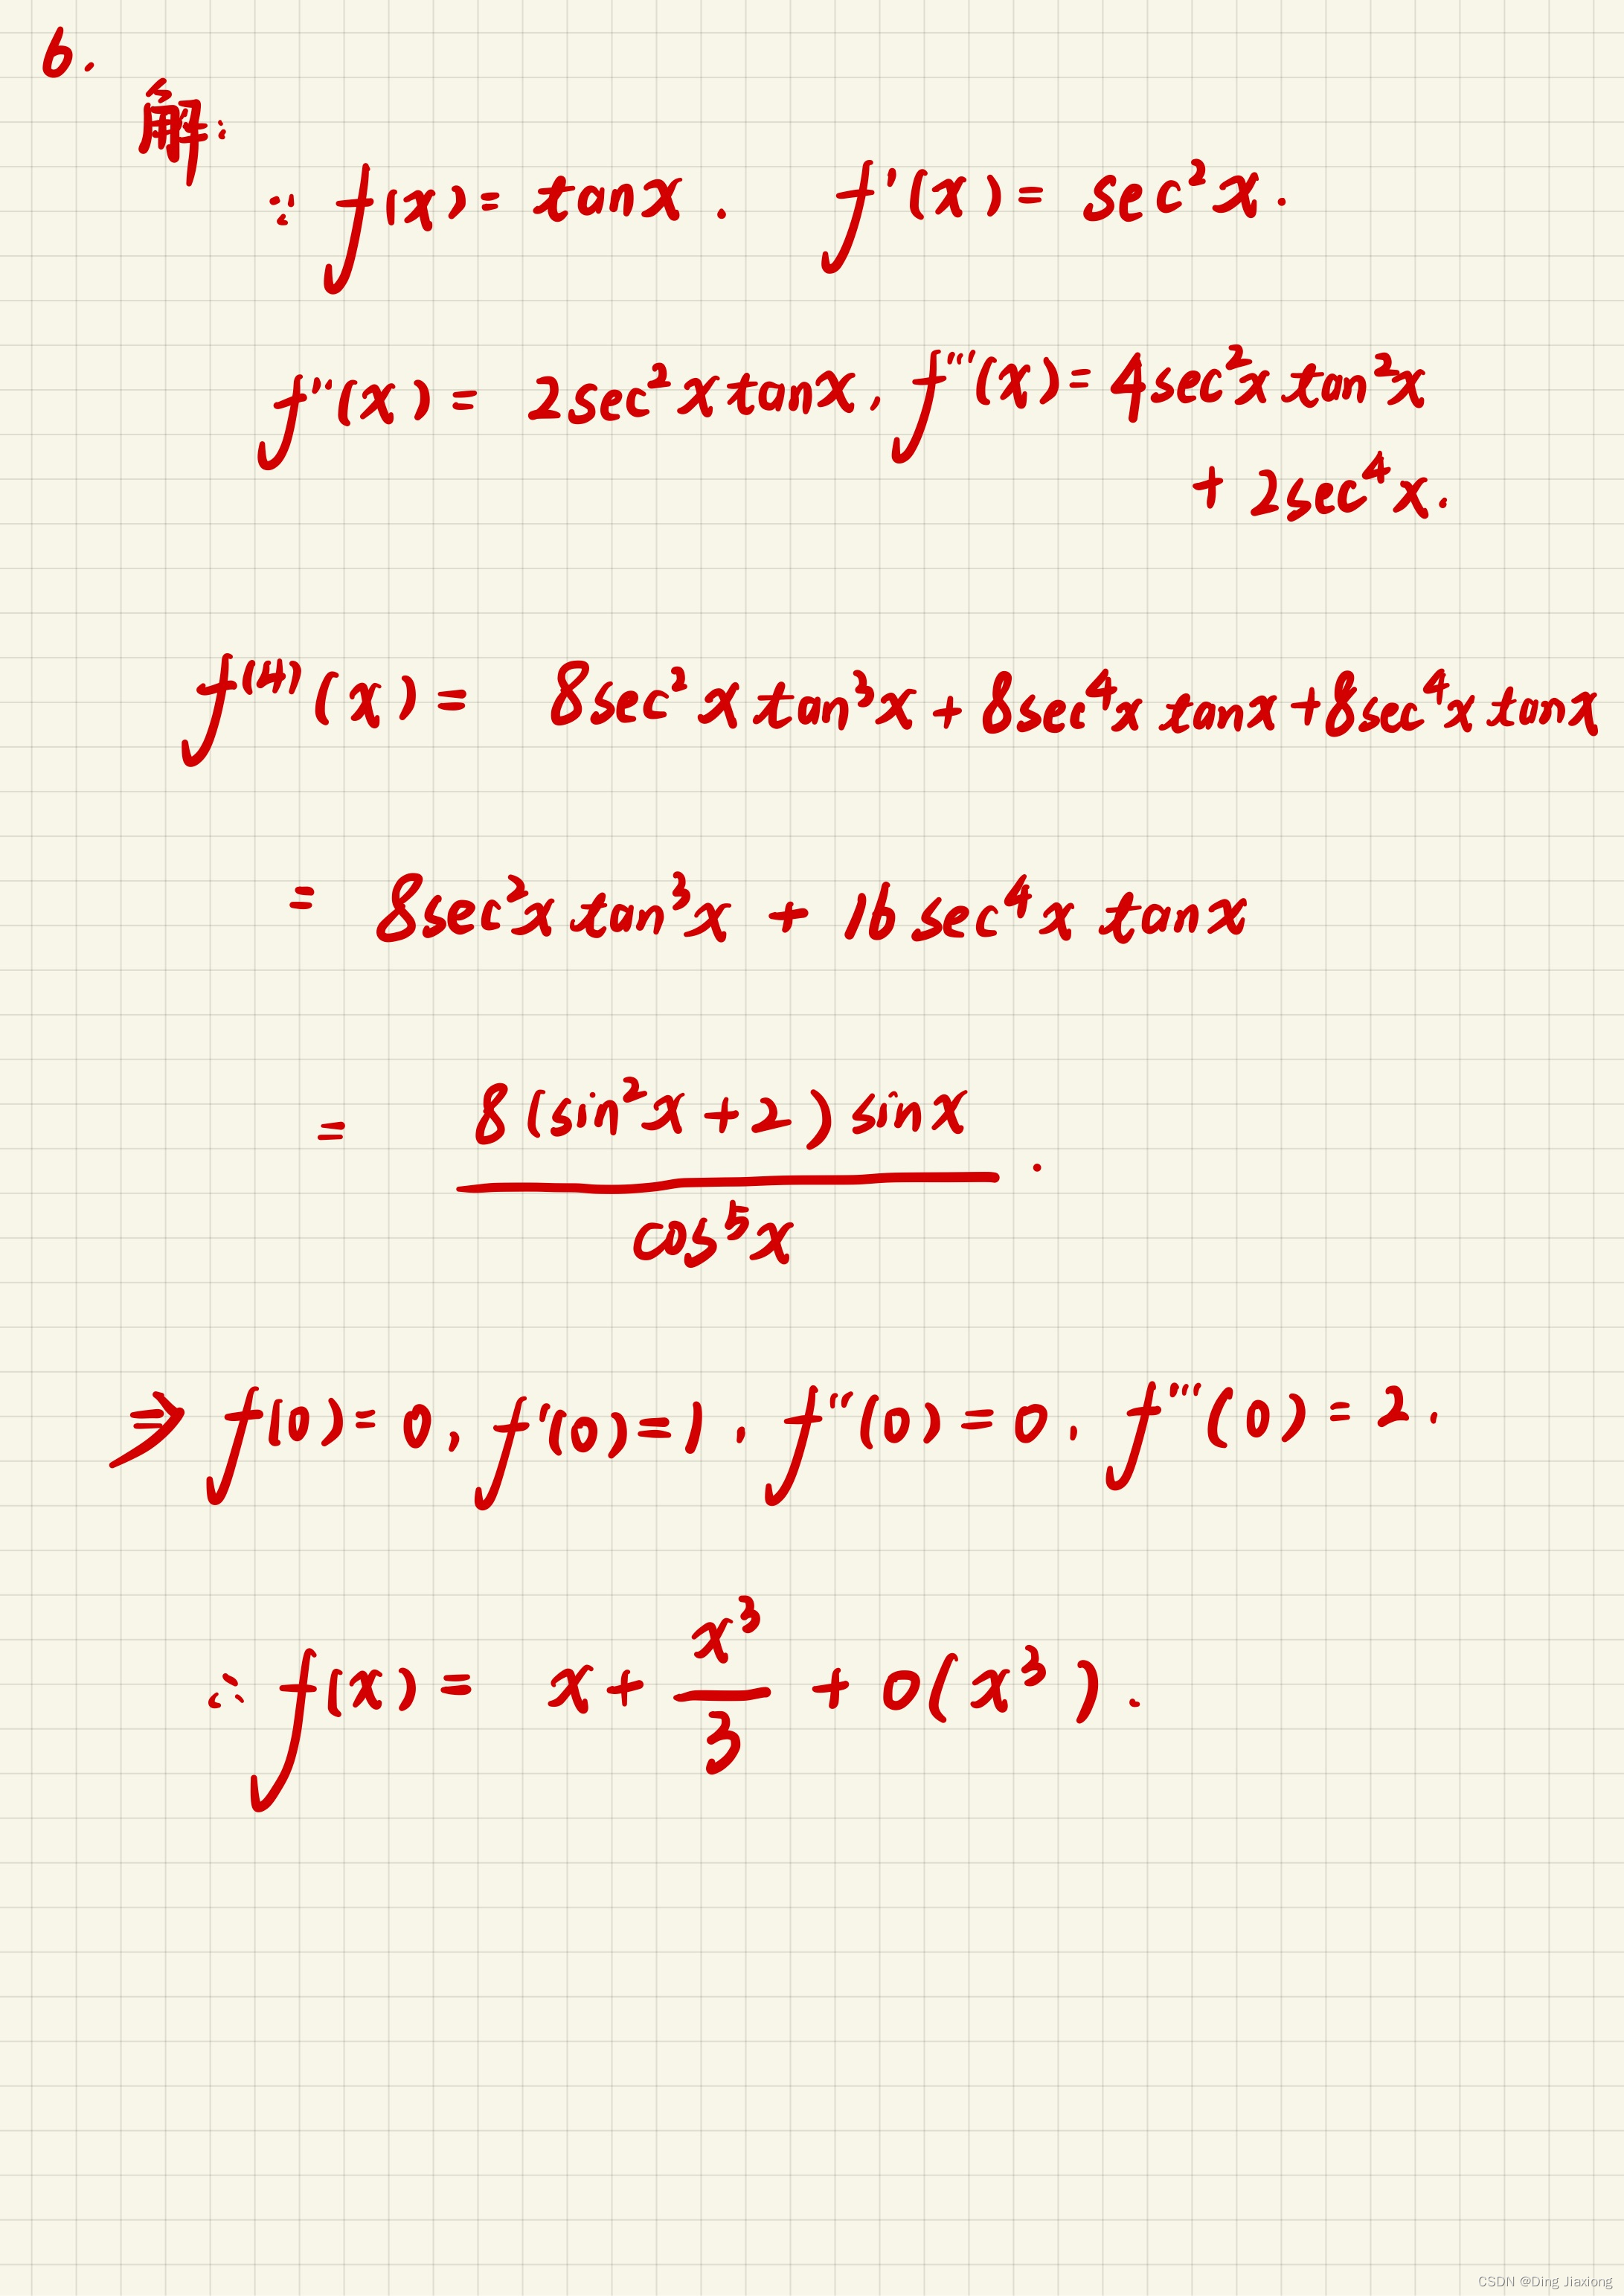 6.
解:
∵ f(x) = tanx. f'(x) = sec²x.
f''(x) = 2sec²x tanx, f'''(x) = 4sec²x tan²x
+ 2sec⁴x.
f⁽⁴⁾(x) = 8sec²x tan³x + 8sec⁴x tanx + 8sec⁴x tanx
= 8sec²x tan³x + 16sec⁴x tanx
= 8(sin²x+2)sinx / cos⁵x .
⇒ f(0)=0, f'(0)=1, f''(0)=0, f'''(0)=2.
∴ f(x) = x + x³/3 + o(x³).
CSDN @Ding Jiaxiong